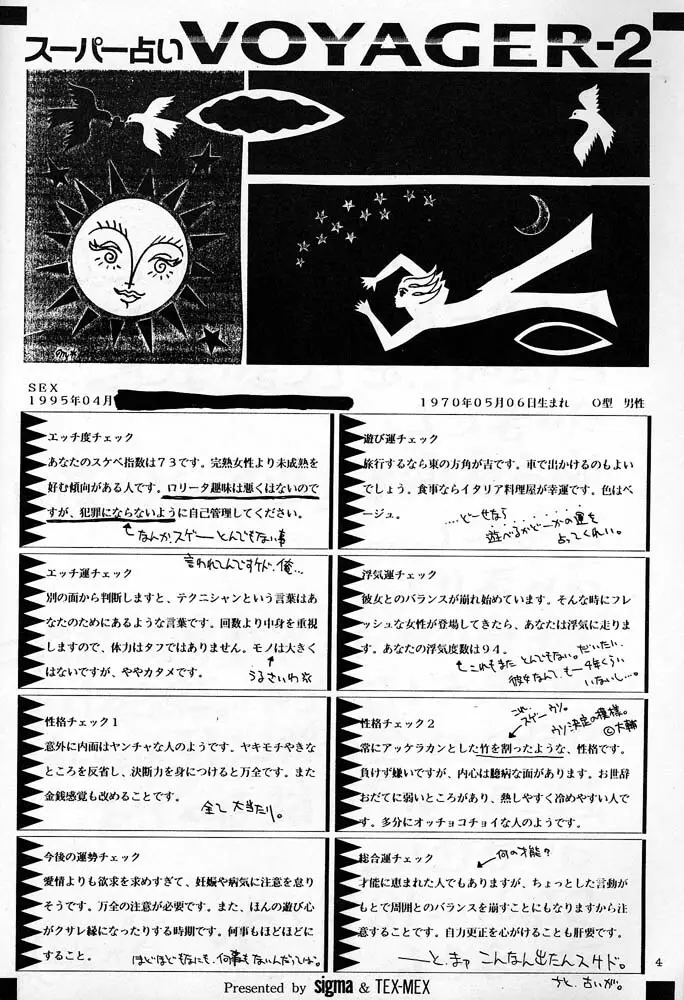 スーパー占い VOYAGER-2
SEX
1995年04月
1970年05月06日生まれ O型 男性
エッチ度チェック
あなたのスケベ指数は73です。完熟女性より未成熟を
好む傾向がある人です。ロリータ趣味は悪くはないので
すが、犯罪にならないように自己管理してください。
なんか、スゲーとんでもない事
言われてんですケド、俺…
エッチ運チェック
別の面から判断しますと、テクニシャンという言葉はあ
なたのためにあるような言葉です。回数より中身を重視
しますので、体力はタフではありません。モノは大きく
はないですが、ややカタメです。
うるさいわ
性格チェック1
意外に内面はヤンチャな人のようです。ヤキモチやきな
ところを反省し、決断力を身につけると万全です。また
金銭感覚も改めることです。
全て大当たり。
今後の運勢チェック
愛情よりも欲求を求めすぎて、妊娠や病気に注意を怠り
そうです。万全の注意が必要です。また、ほんの遊び心
がクサレ縁になったりする時期です。何事もほどほどに
すること。
ほどほどもなにも、何事もないんだってば。
遊び運チェック
旅行するなら東の方角が吉です。車で出かけるのもよい
でしょう。食事ならイタリア料理屋が幸運です。色はベ
ージュ。
…どーせなら
遊べるかどーかの運を
占ってくれい。
浮気運チェック
彼女とのバランスが崩れ始めています。そんな時にフレ
ッシュな女性が登場してきたら、あなたは浮気に走りま
す。あなたの浮気度数は94。
これもまた とんでもない。だいたい、
彼女なんて、もー4年くらい
いないし…。
これ、
スゲーウソ。
ウソ決定の模様。
©大輔
性格チェック2
常にアッケラカンとした竹を割ったような、性格です。
負けず嫌いですが、内心は臆病な面があります。お世辞
おだてに弱いところがあり、熱しやすく冷めやすい人で
す。多分にオッチョコチョイな人のようです。
何の才能?
総合運チェック
才能に恵まれた人でもありますが、ちょっとした言動が
もとで周囲とのバランスを崩すことにもなりますから注
意することです。自力更正を心がけることも肝要です。
——と、まァ こんなん出たんスケド。
ちと、古いが。
4
Presented by sigma & TEX-MEX